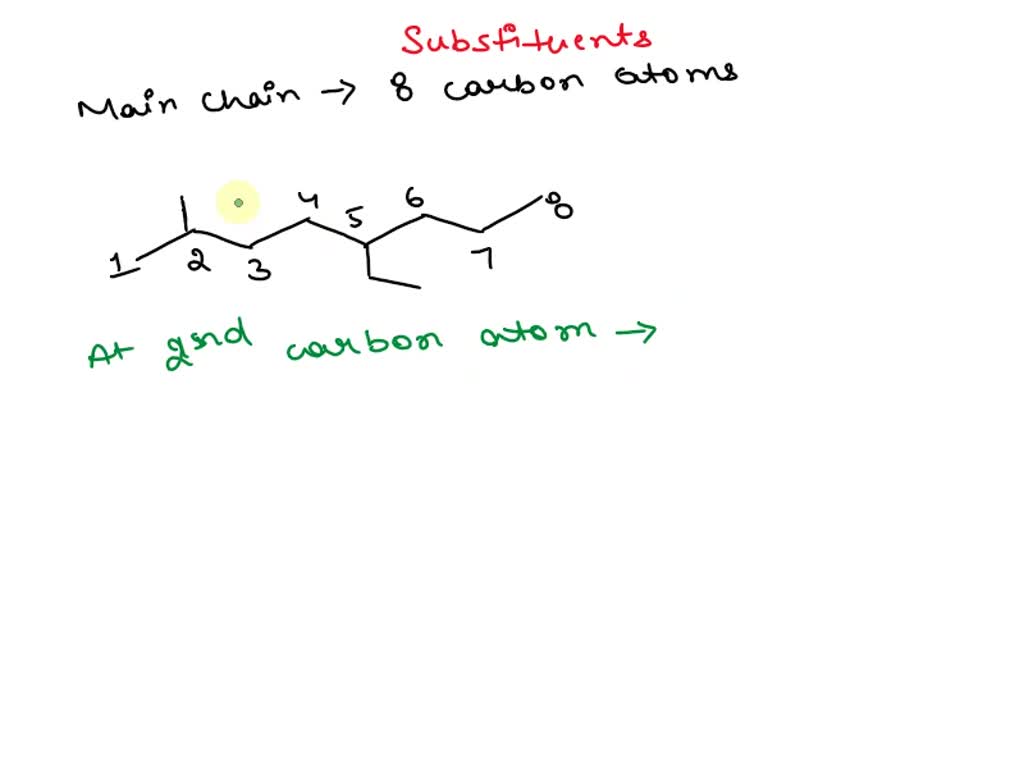 Substituents
Main chain → 8 carbon atoms
4 6
5 8
1 2 3 7
At 2nd carbon atom →